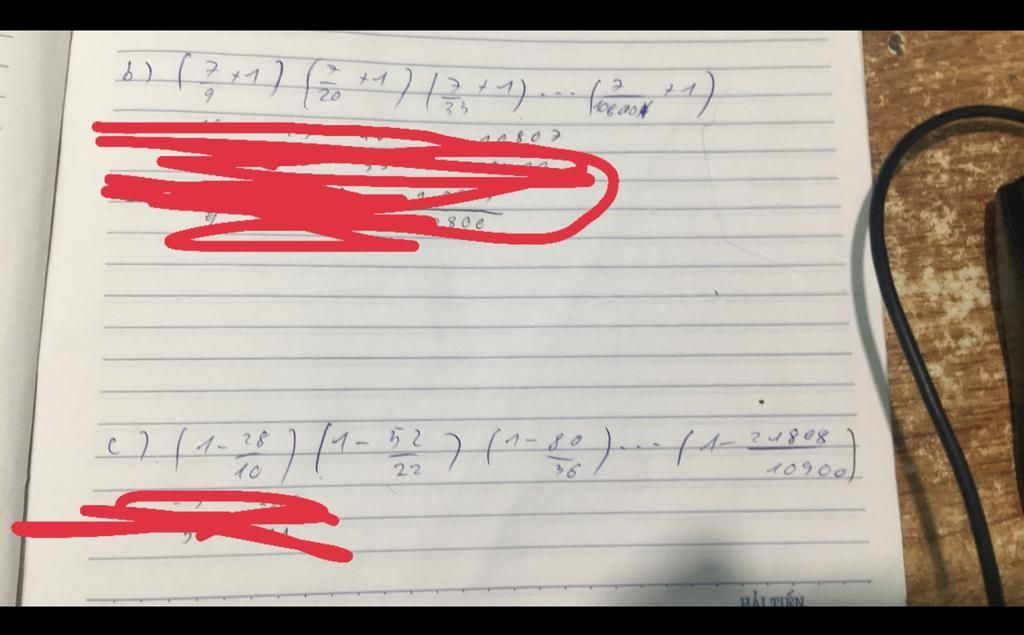 b) (7/9 + 1) (7/20 + 1) (7/33 + 1) ... (7/10800 + 1)
10807
800
c) (1 - 28/10) (1 - 52/22) (1 - 80/36) ... (1 - 21808/10900)
HẢI TIẾN